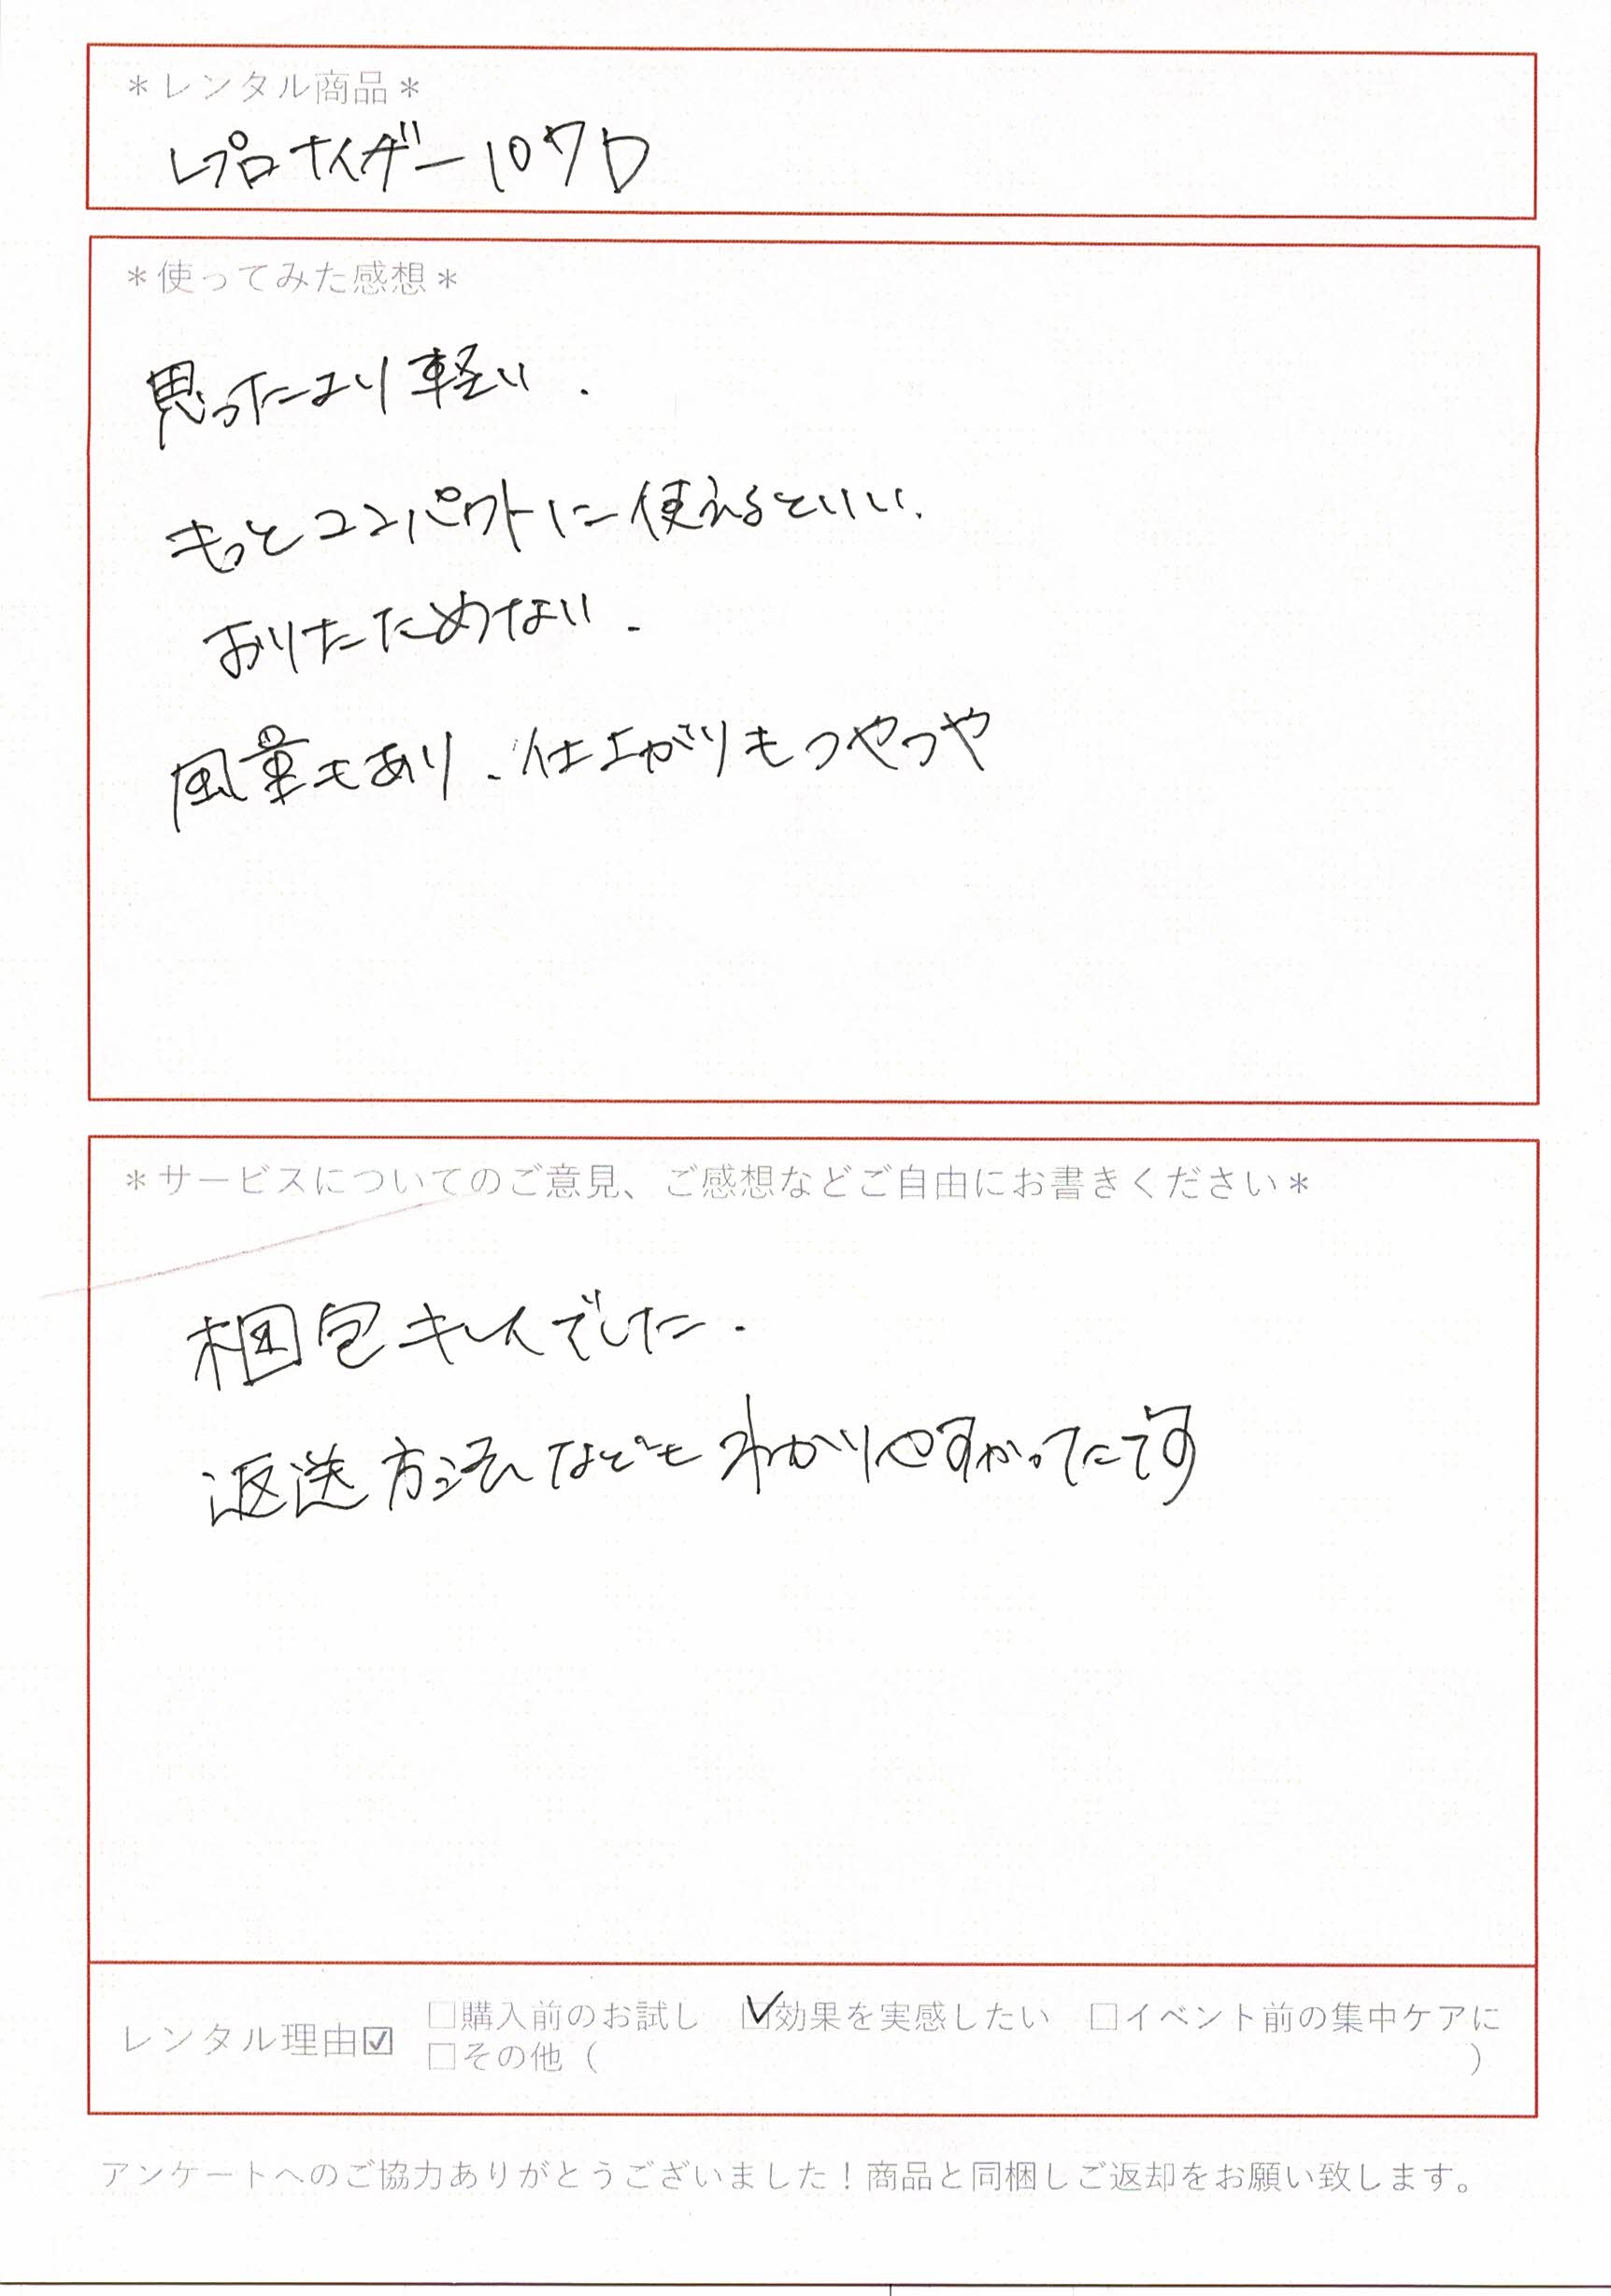 ＊レンタル商品＊
レプロナイザー107D
＊使ってみた感想＊
思ったより軽い.
もっとコンパクトに使えるといい.
おりたためない.
風量もあり、仕上がりもつやつや
＊サービスについてのご意見、ご感想などご自由にお書きください＊
梱包キレイでした.
返送方法などもわかりやすかったです
レンタル理由☑ □購入前のお試し ☑効果を実感したい □イベント前の集中ケアに
□その他（ ）
アンケートへのご協力ありがとうございました！商品と同梱しご返却をお願い致します。